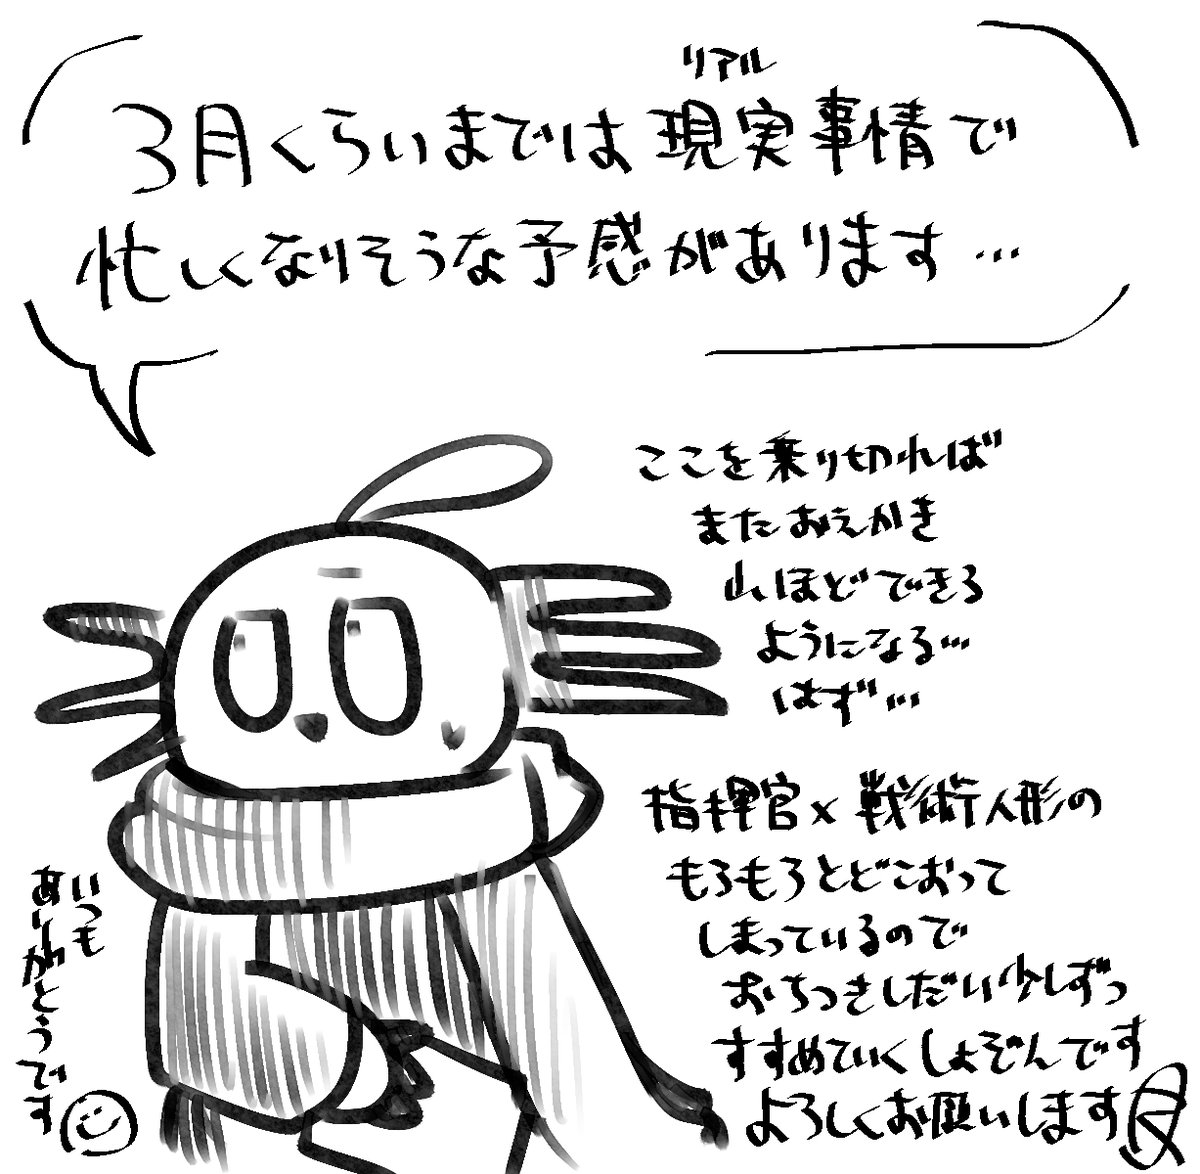 3月くらいまでは現実事情で
リアル
忙しくなりそうな予感があります…
ここを乗り切れば
またおえかき
山ほどできる
ようになる…
はず…
指揮官×戦術人形の
もろもろとどこおって
しまっているので
おちつきしだい少しずつ
すすめていくしょぞんです
よろしくお願いします
いつも
ありがとうです